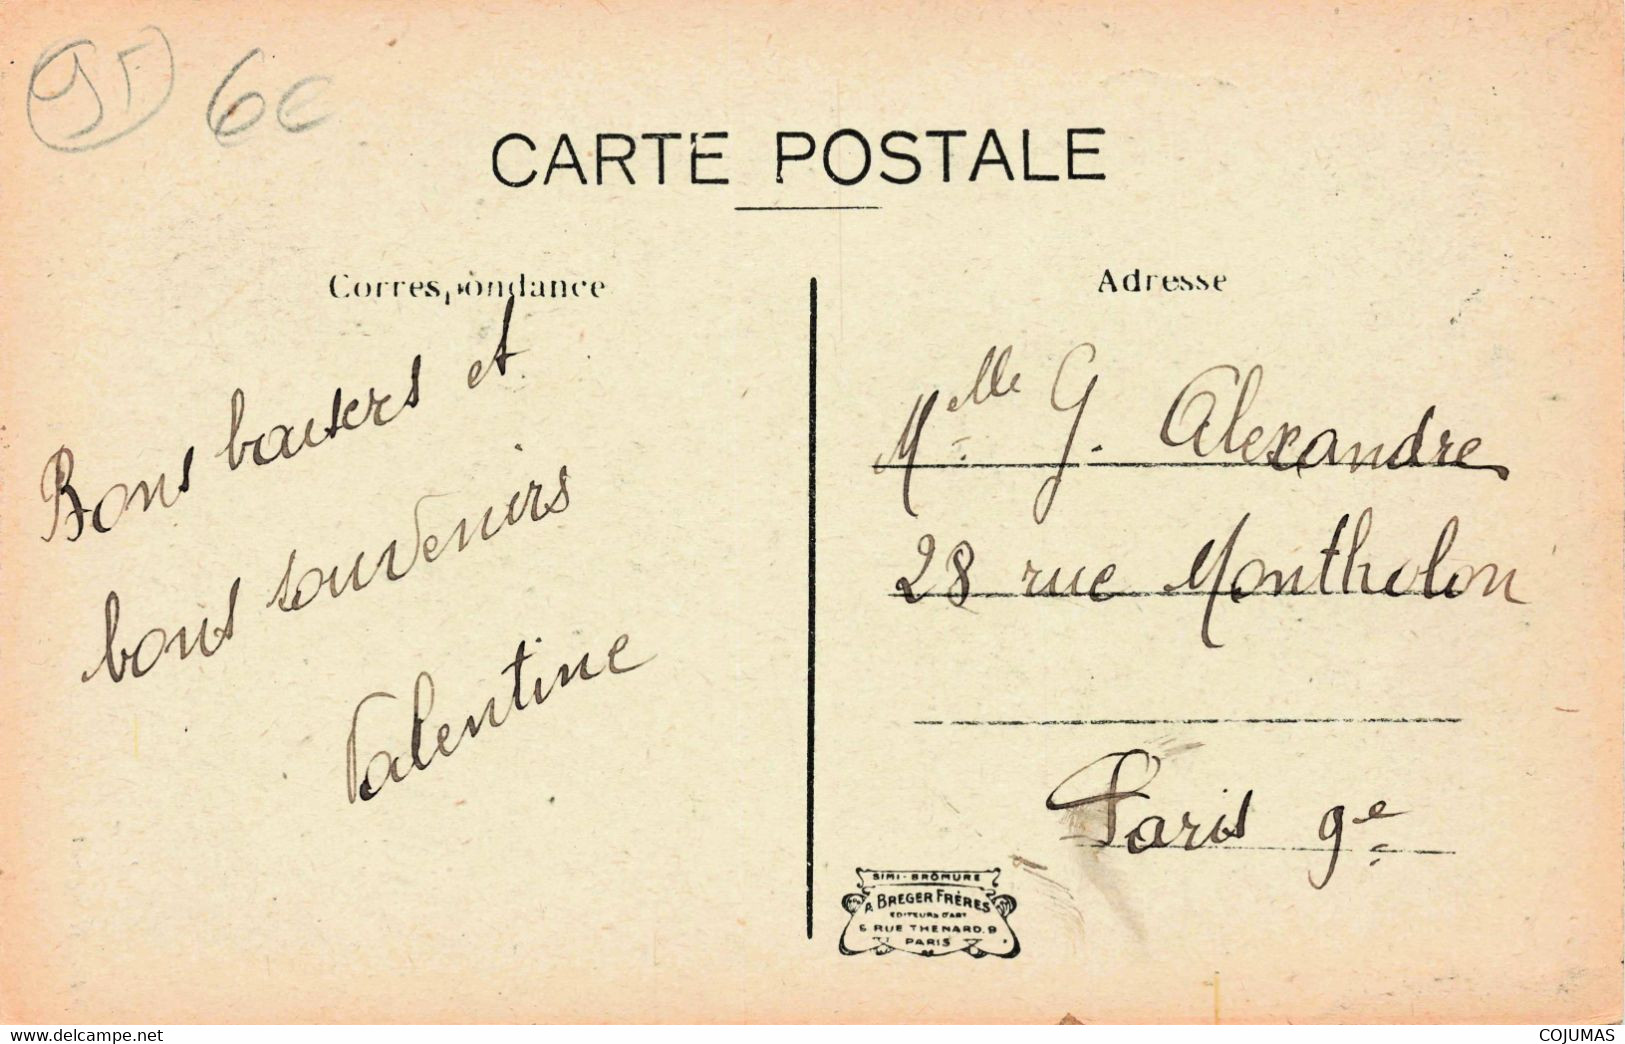 95 6€
CARTE POSTALE
Correspondance
Adresse
Bons baisers et
bons souvenirs
Valentine
Mlle G. Alexandre
28 rue Montholon
Paris 9e
SIMI-BROMURE
A. BREGER FRÈRES
EDITEURS D'ART
RUE THENARD, 9
PARIS
www.delcampe.net
COJUMAS